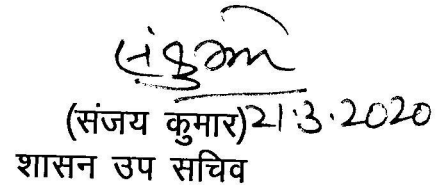 (संजय कुमार) 21.3.2020
शासन उप सचिव